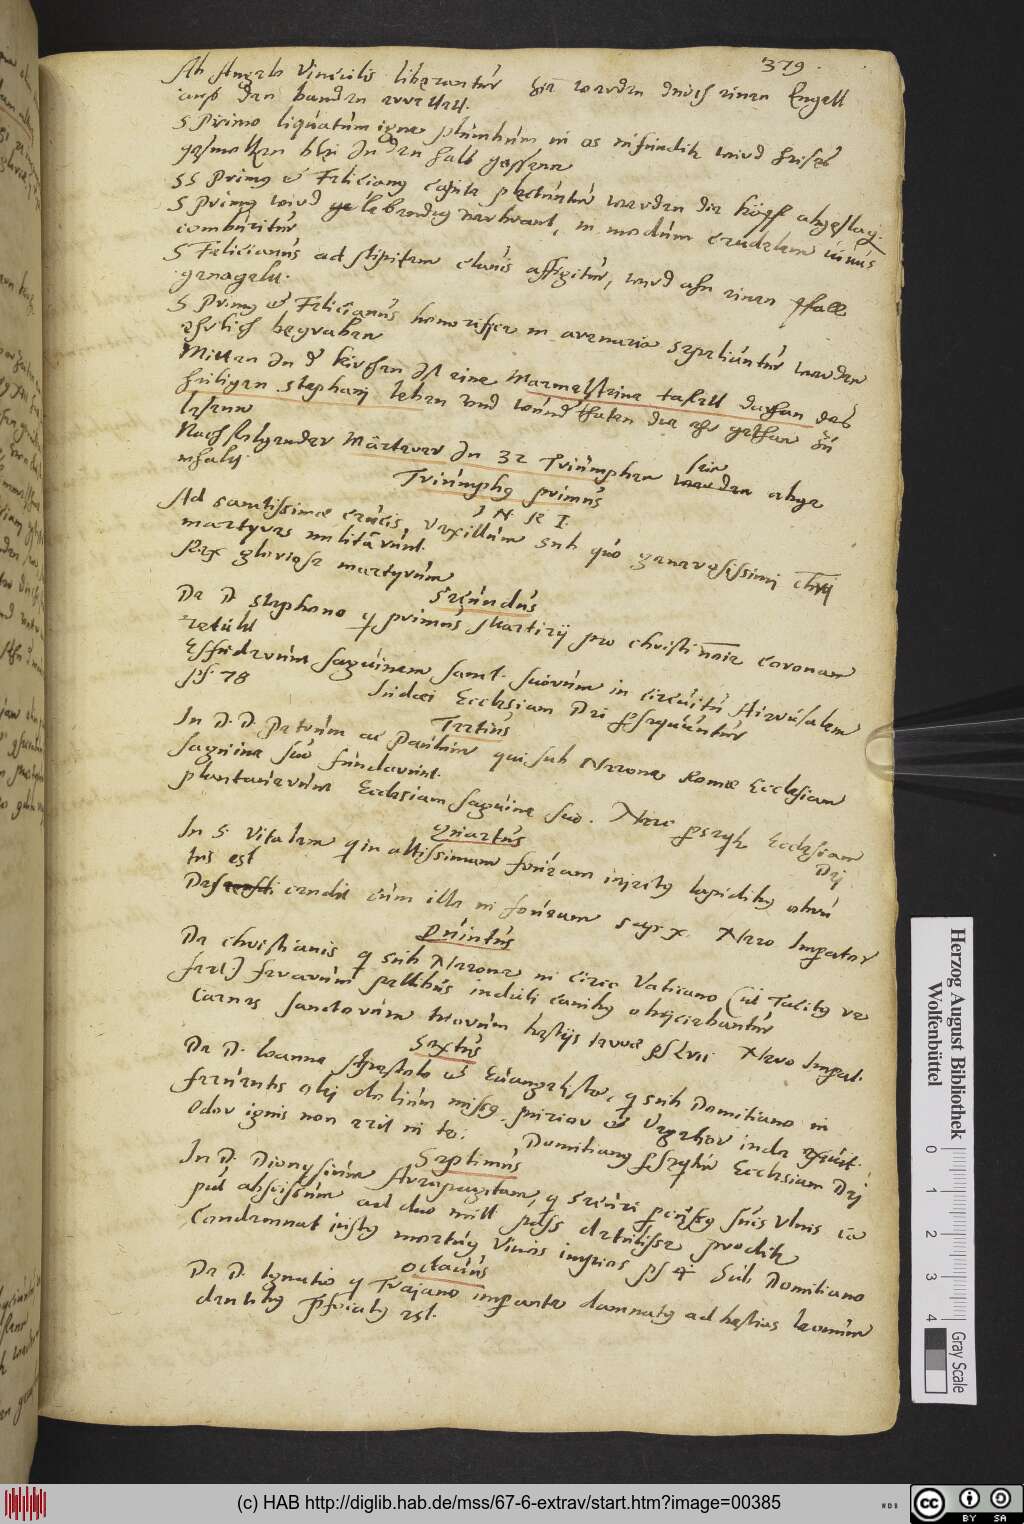 379.
Ab Angelo Vinculis liberantur die werden durch einen Engell
auß den banden errettet.
S Primo liquatum igne plumbum in os infunditur wird heises
geschmoltzen bley in den halß gossenn
SS Primus et Felicianus capite plectuntur werden die köpff abgeslag.
S Primus wird lebendig verbrant, in modum crudelem vivus
comburitur
S Felicianus ad stipitem clavis affigitur, wird ahn einen pfall
genagelt.
S Primus et Felicianus honorifice in arenario sepeliuntur werden
ehrlich begraben
Mitten in d kirchen ist eine Marmelsteine tafell daran des
heiligen Stephanj leben und wunderthaten die ehr gethan zu
lesenn
Nachfolgender Märterer in 32 Triumphen sein werden abge
mhalt.
Triumphus primus
J N R I.
Ad sanctissimae crucis, vexillum sub quo generosissimi chri
martyres militarunt.
Rex gloriose martyrum
Secundus
De D. Stephano q primus Martirij pro christi noie coronam
retulit
Effuderunt sanguinem sanct. suorum in circuitu Hierusalem
ps. 78 Iudaei Ecclesiam Dei psequuntur
Tertius
In D. D. Petrum ac Paulum qui sub Nerone Romae Ecclesiam
sanguine suo fundarunt.
plantaverunt Ecclesiam sanguine suo. Nero pseqtr Ecclesiam
Dej
Quartus
In S. Vitalem qui in altissimam foveam iniectus lapidibus obru
tus est
Descendit cum illo in foveam Sap. x. Nero Imperator
Quintus
De christianis q sub Nerone in circo Vaticano (ut Tacitus re
fert) ferarum pellibus induti canibus obijciebantur
Carnes sanctorum tuorum bestijs terrae ps Lxvii Nero Imperat.
Sextus
De D. Ioanne Apostolo et Evangelista, q sub Domitiano in
ferventis olej dolium missus purior et vegetior inde exivit.
Odor ignis non erit in te: Domitianus pseqtur Ecclesiam Dej
Septimus
In D. Dionysium Areopagitam, q securi percussus suis ulnis ca
put abscissum ad duo mill pass detulisse proditr
Condemnat iustus mortuus vivos impios ps 4 sub Domitiano
Octavus
De D. Ignatio q Traiano imperante damnatus ad bestias leonum
dentibus pfoiatus est.
Herzog August Bibliothek
Wolfenbüttel
0 1 2 3 4
Gray Scale
(c) HAB http://diglib.hab.de/mss/67-6-extrav/start.htm?image=00385
WDB
CC BY SA